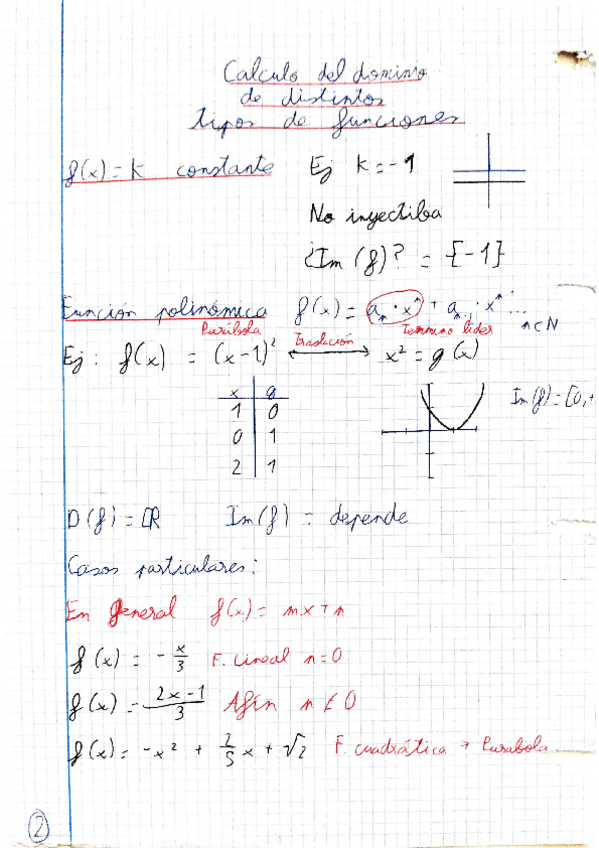 Calculo del dominio
de distintos
tipos de funciones
f(x) = k constante Ej k = -1
No inyectiba
¿Im (f)? = {-1}
Función polinómica f(x) = aₙ · xⁿ + aₙ₋₁ · xⁿ ...
Parábola Traslación Termino lider n ∈ N
Ej : f(x) = (x-1)² ⟷ x² = g(x)
x g
1 0
0 1
2 1
Im(f) = [0,+
D(f) = ℝ Im(f) = depende
Casos particulares:
En general f(x) = mx + n
f(x) = - x/3 F. Lineal n = 0
f(x) = (2x-1)/3 Afín n ≠ 0
f(x) = -x² + 2/5 x + √2 F. cuadrática → Parabola
2